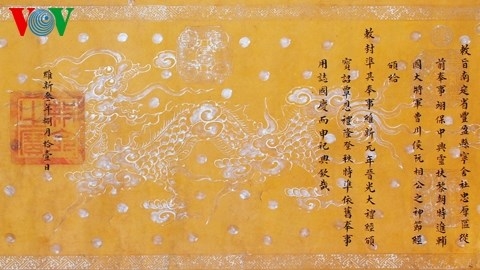 VOV
敕旨南定省豐盈縣寧舍社忠厚區從
前奉事翊保中興靈扶黎朝特進輔
國大將軍晉川侯阮相公之神節經
頒給
敕封準其奉事維新元年晉光大禮經頒
寶詔覃恩禮隆登秩特準依舊奉事
用誌國慶而申祀典欽哉
維新叁年捌月拾壹日